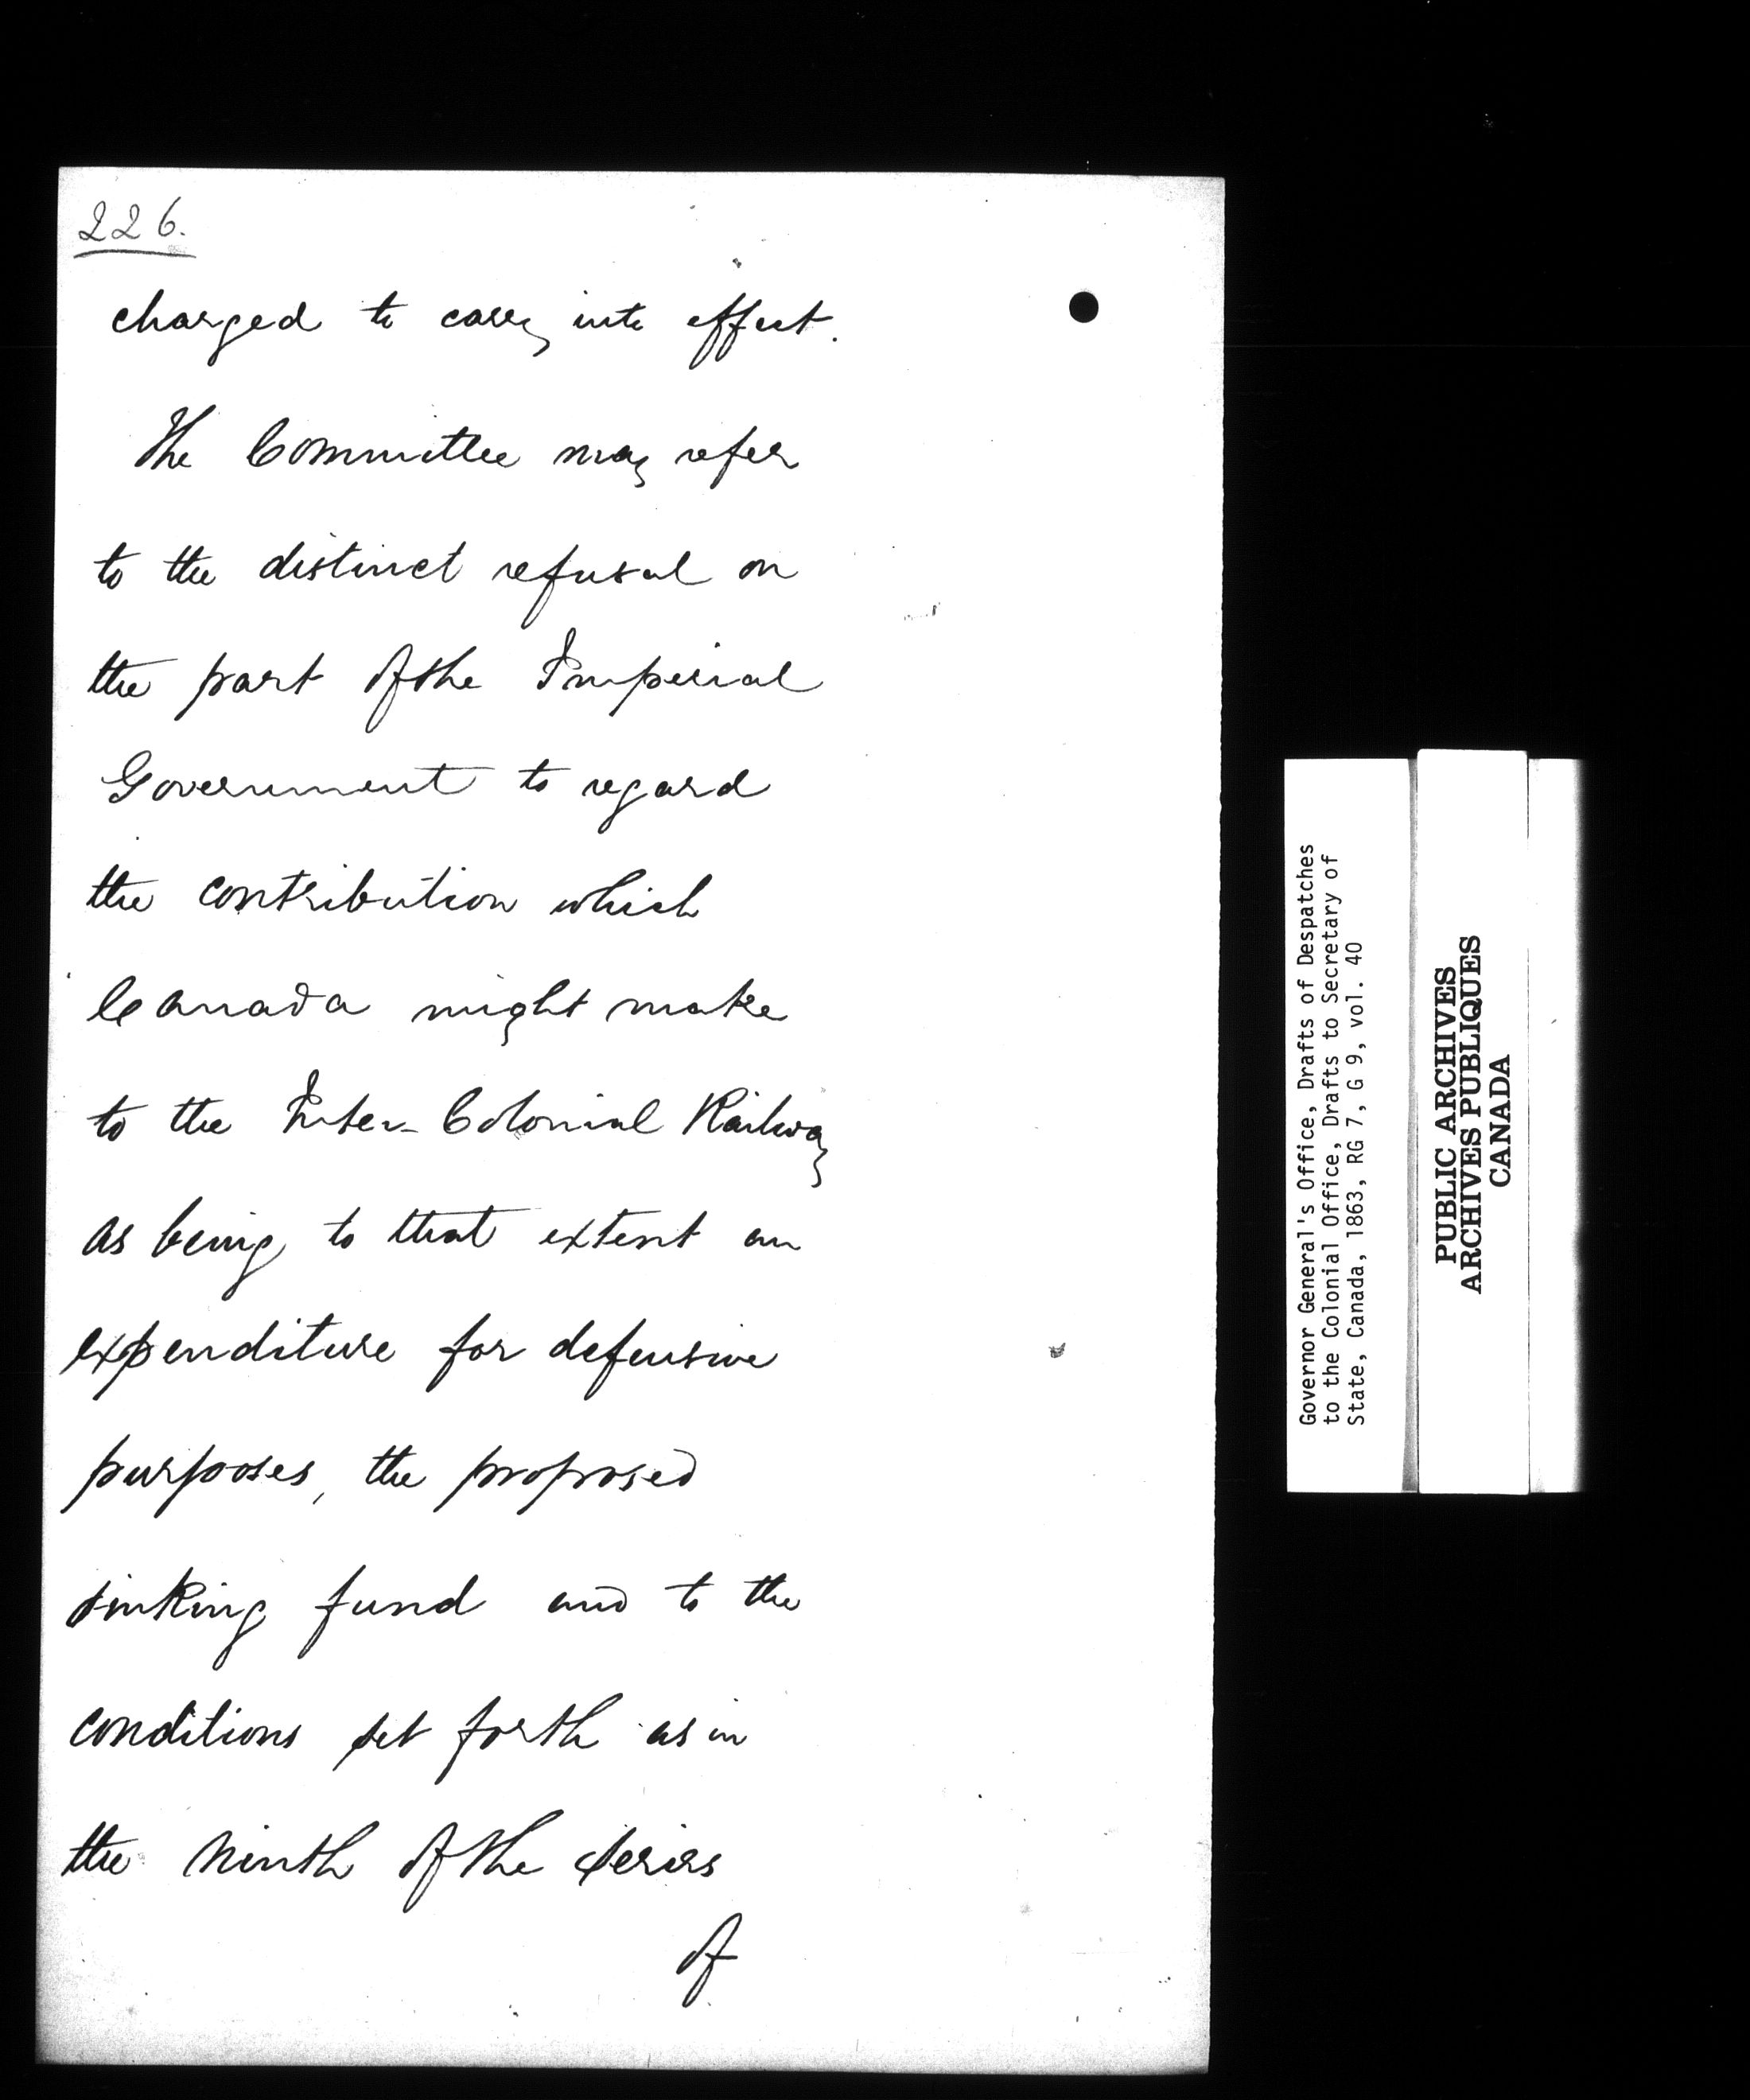 226.
charged to carry into effect.
The Committee may refer
to the distinct refusal on
the part of the Imperial
Government to regard
the contribution which
Canada might make
to the Inter-Colonial Railway
as being to that extent an
expenditure for defensive
purposes, the proposed
sinking fund and to the
conditions set forth as in
the ninth of the series
of
Governor General's Office, Drafts of Despatches
to the Colonial Office, Drafts to Secretary of
State, Canada, 1863, RG 7, G 9, vol. 40
PUBLIC ARCHIVES
ARCHIVES PUBLIQUES
CANADA